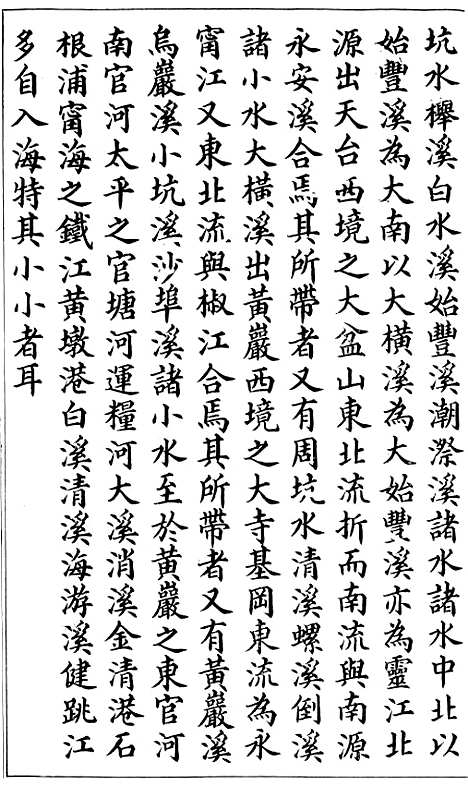 坑水櫸溪白水溪始豐溪潮漈溪諸水諸水中北以
始豐溪為大南以大橫溪為大始豐溪亦為靈江北
源出天台西境之大盆山東北流折而南流與南源
永安溪合焉其所帶者又有周坑水清溪螺溪倒溪
諸小水大橫溪出黃巖西境之大寺基岡東流為永
甯江又東北流與椒江合焉其所帶者又有黃巖溪
烏巖溪小坑溪沙埠溪諸小水至於黃巖之東官河
南官河太平之官塘河運糧河大溪消溪金清港石
根浦甯海之鐵江黃墩港白溪清溪海游溪健跳江
多自入海特其小小者耳